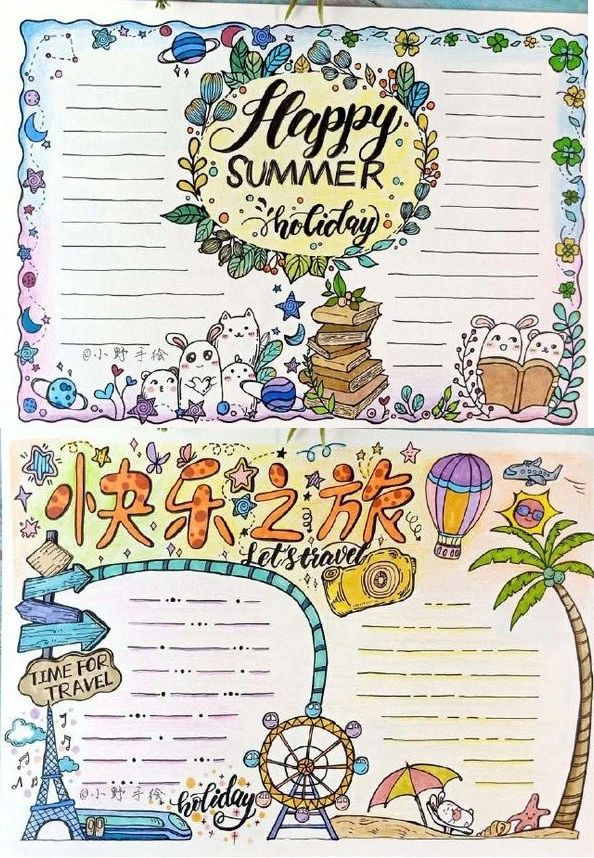 Happy
SUMMER
holiday
@小野手绘
快乐之旅
Let's travel
TIME FOR
TRAVEL
@小野手绘
holiday